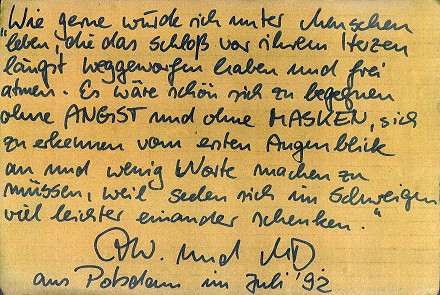 "Wie gerne würde ich unter Menschen
leben, die das Schloß vor ihrem Herzen
längst weggeworfen haben und frei
atmen. Es wäre schön sich zu begegnen
ohne ANGST und ohne MASKEN, sich
zu erkennen vom ersten Augenblick
an und wenig Worte machen zu
müssen, weil Seelen sich im Schweigen
viel leichter einander schenken."
und
aus Potsdam im Juli '92